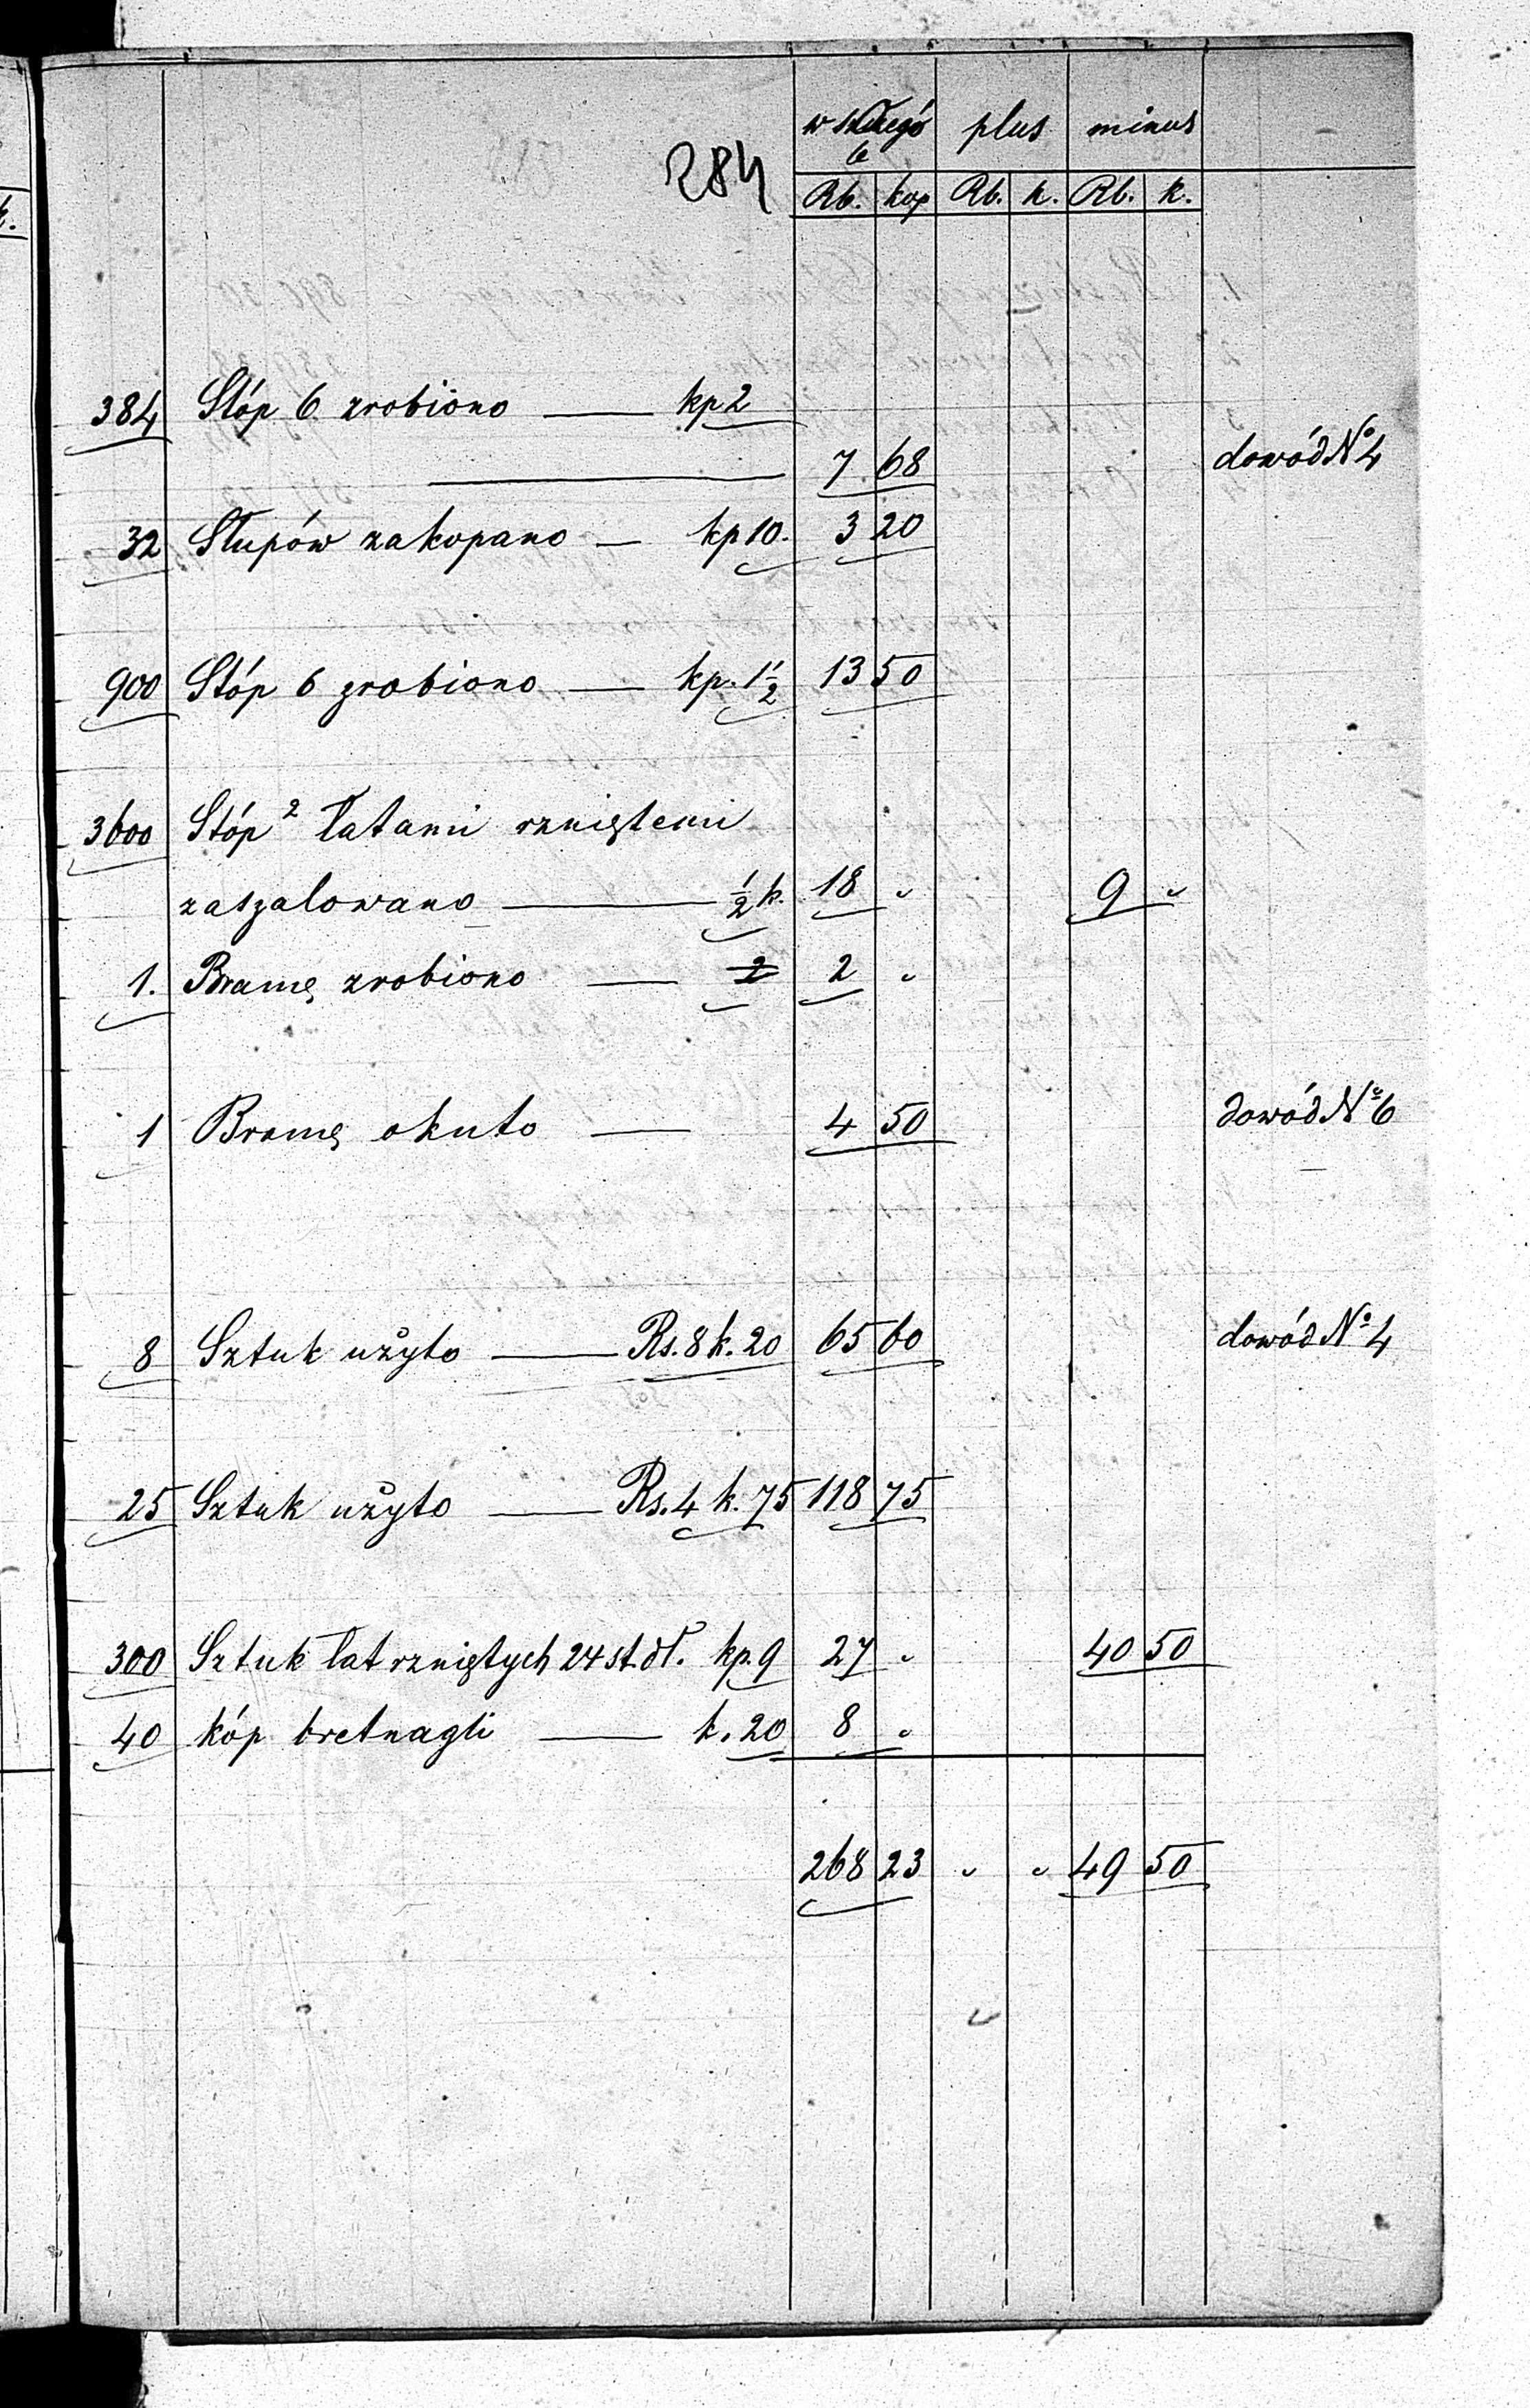 284
plus minus
Rb. kop Rb. k. Rb. k.
384 Stóp 6 zrobiono — kp 2
7 68 dowód № 4
32 Słupów zakopano — kp 10. 3 20
900 Stóp 6 zrobiono — kp. 1 1/2 13 50
3600 Stóp 2 łatami rzniętemi
zaszalowano — 1/2 k. 18 " 9 "
1. Bramę zrobiono — 2 2 "
1 Bramę okuto — 4 50 dowód № 6
8 Sztuk użyto — Rs. 8 k. 20 65 60 dowód № 4
25 Sztuk użyto — Rs. 4 k. 75 118 75
300 Sztuk łat rzniętych 24 st. dł. kp. 9 27 " 40 50
40 kóp bretnagli — k. 20 8 "
268 23 " " 49 50